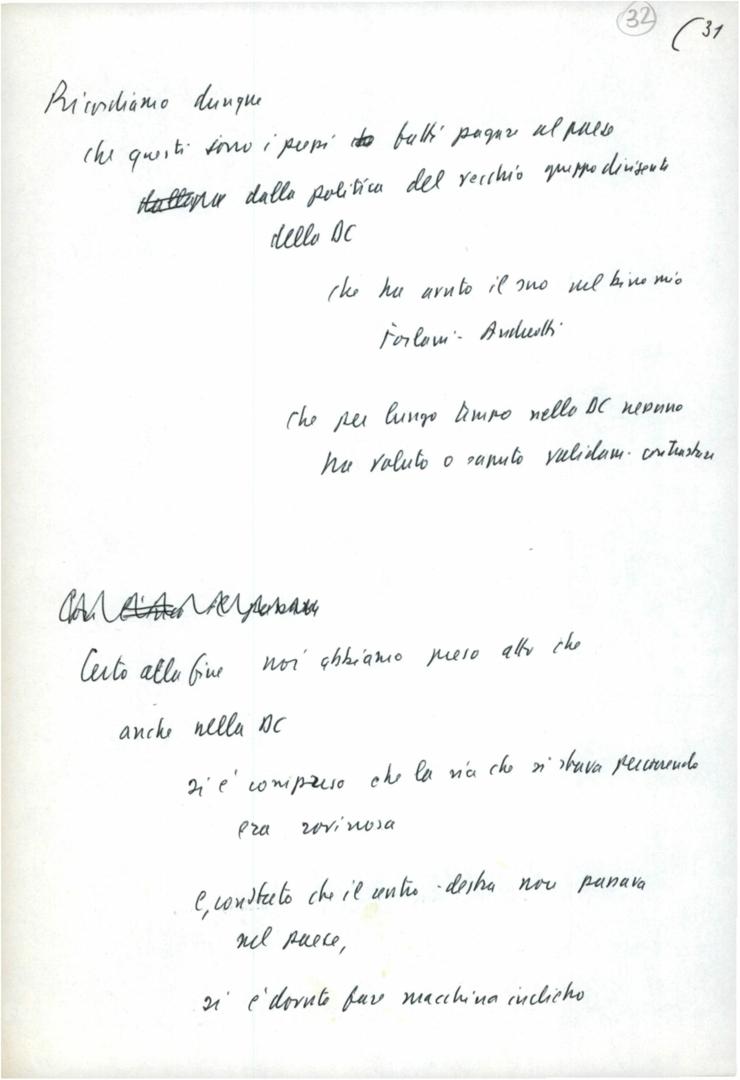 32
(31
Ricordiamo dunque
che questi sono i prezzi fatti pagare al paese
dalla politica del vecchio gruppo dirigente
della DC
che ha avuto il suo nel binomio
Forlani - Andreotti
che per lungo tempo nella DC nessuno
ha voluto o saputo validam. contrastare
Certo alla fine noi abbiamo preso atto che
anche nella DC
si è compreso che la via che si stava percorrendo
era rovinosa
e, constatato che il centro-destra non passava
nel paese,
si è dovuto fare macchina indietro